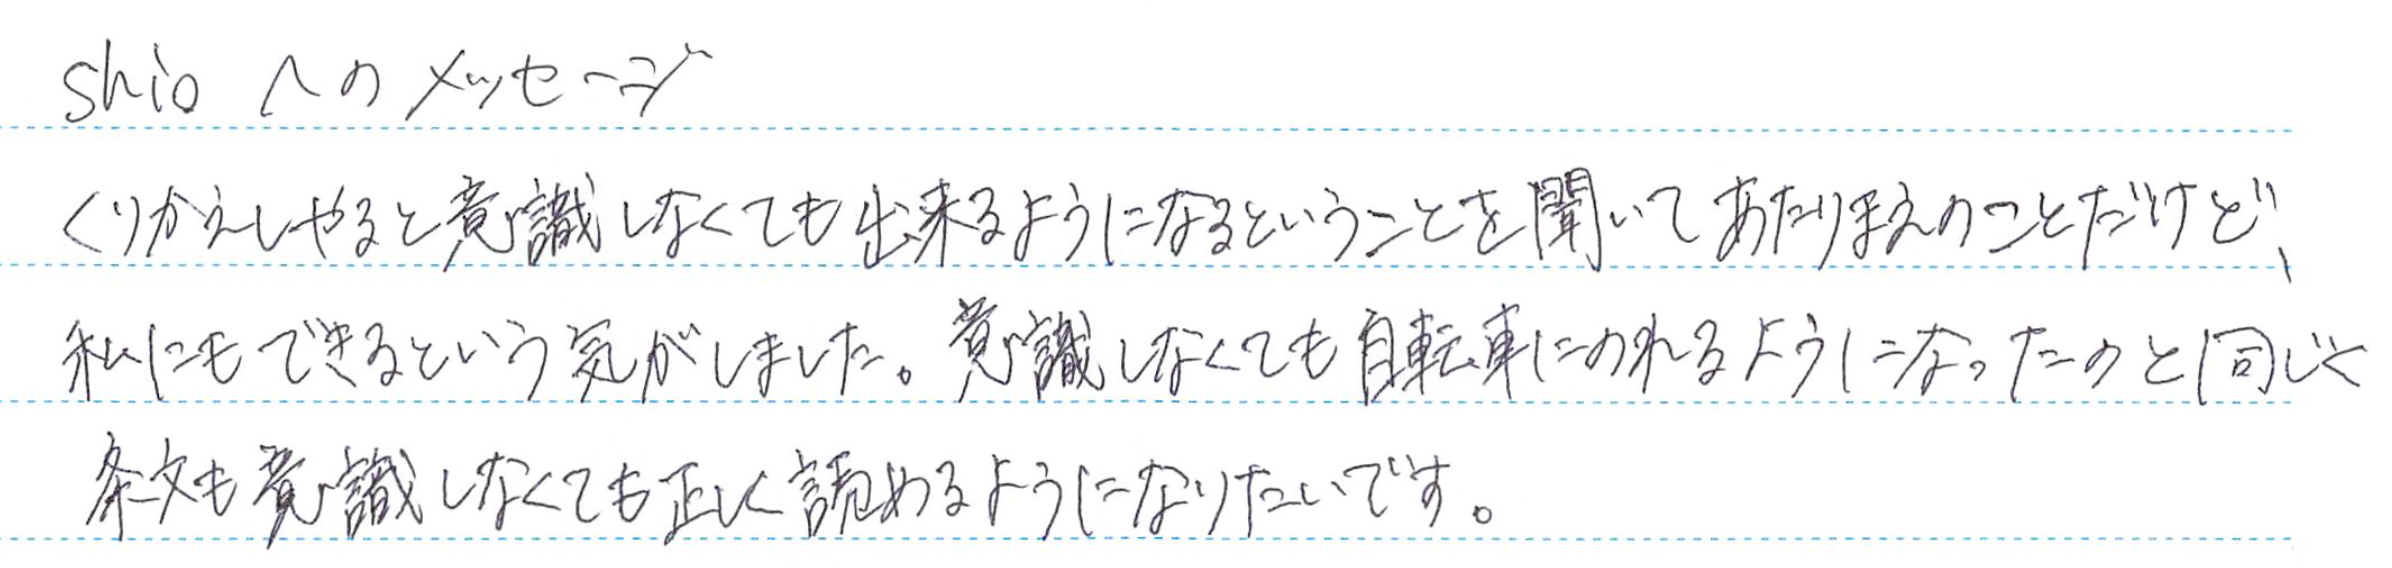 shioへのメッセージ
くりかえしやると意識しなくても出来るようになるということを聞いてあたりまえのことだけど、
私にもできるという気がしました。意識しなくても自転車にのれるようになったのと同じく
条文も意識しなくても正しく読めるようになりたいです。